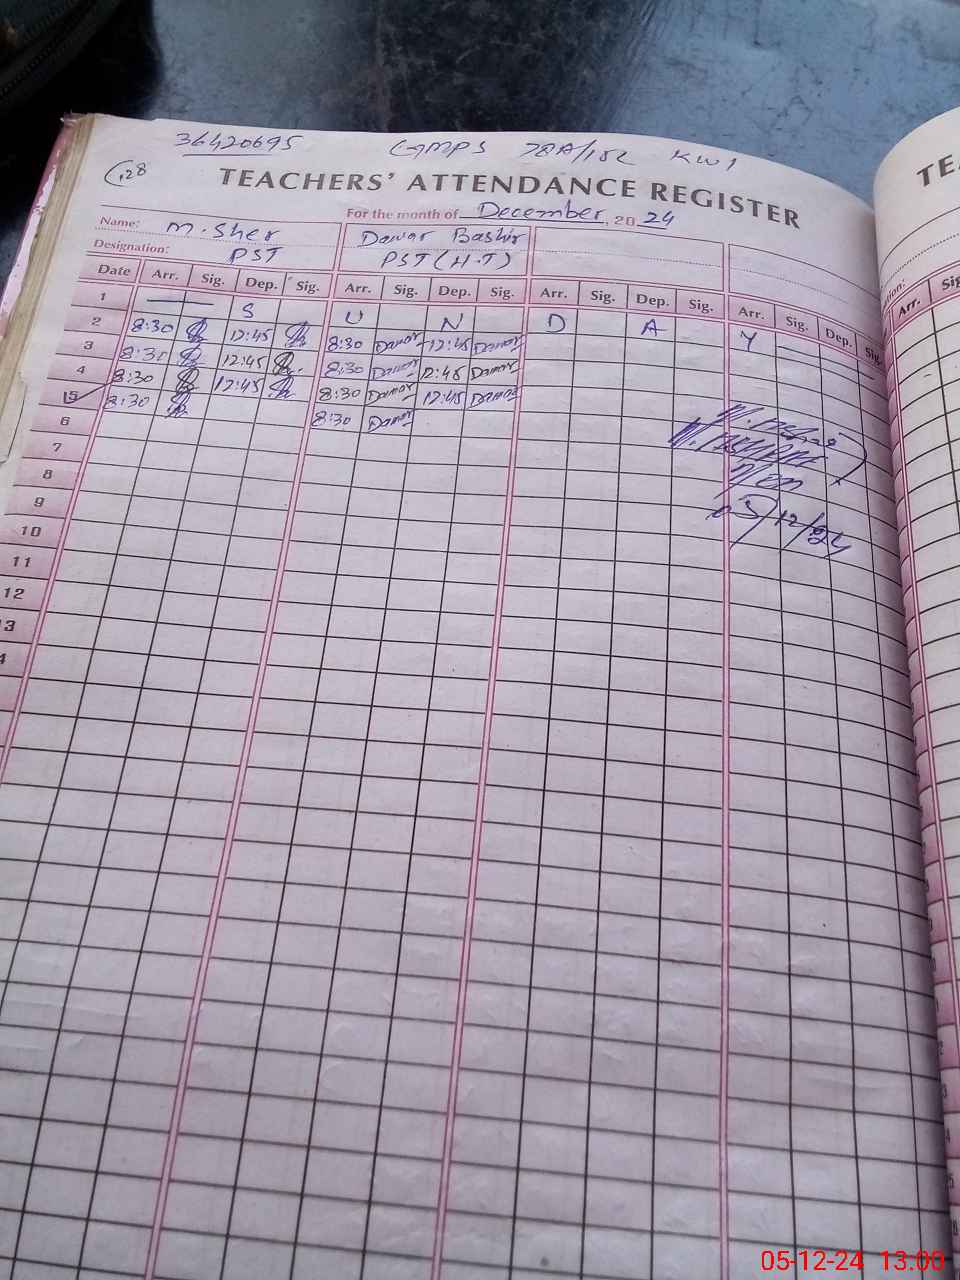 36420695 GMPS 78A/15L KW1
128
TEACHERS' ATTENDANCE REGISTER
For the month of December, 2024
Name: M. Sher Dawar Bashir
Designation: PST PST (H.T)
Date Arr. Sig. Dep. Sig. Arr. Sig. Dep. Sig. Arr. Sig. Dep. Sig. Arr. Sig. Dep. Sig.
1 S U N D A Y
2 8:30 12:45 8:30 Dawar 12:45 Dawar
3 8:30 12:45 8:30 Dawar 12:45 Dawar
4 8:30 12:45 8:30 Dawar 12:45 Dawar
5 8:30 8:30 Dawar
6
7
8
9
05/12/24
10
11
12
13
Arr.
05-12-24 13.00